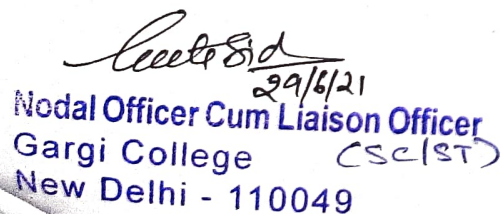 29/6/21
Nodal Officer Cum Liaison Officer
Gargi College (SC/ST)
New Delhi - 110049